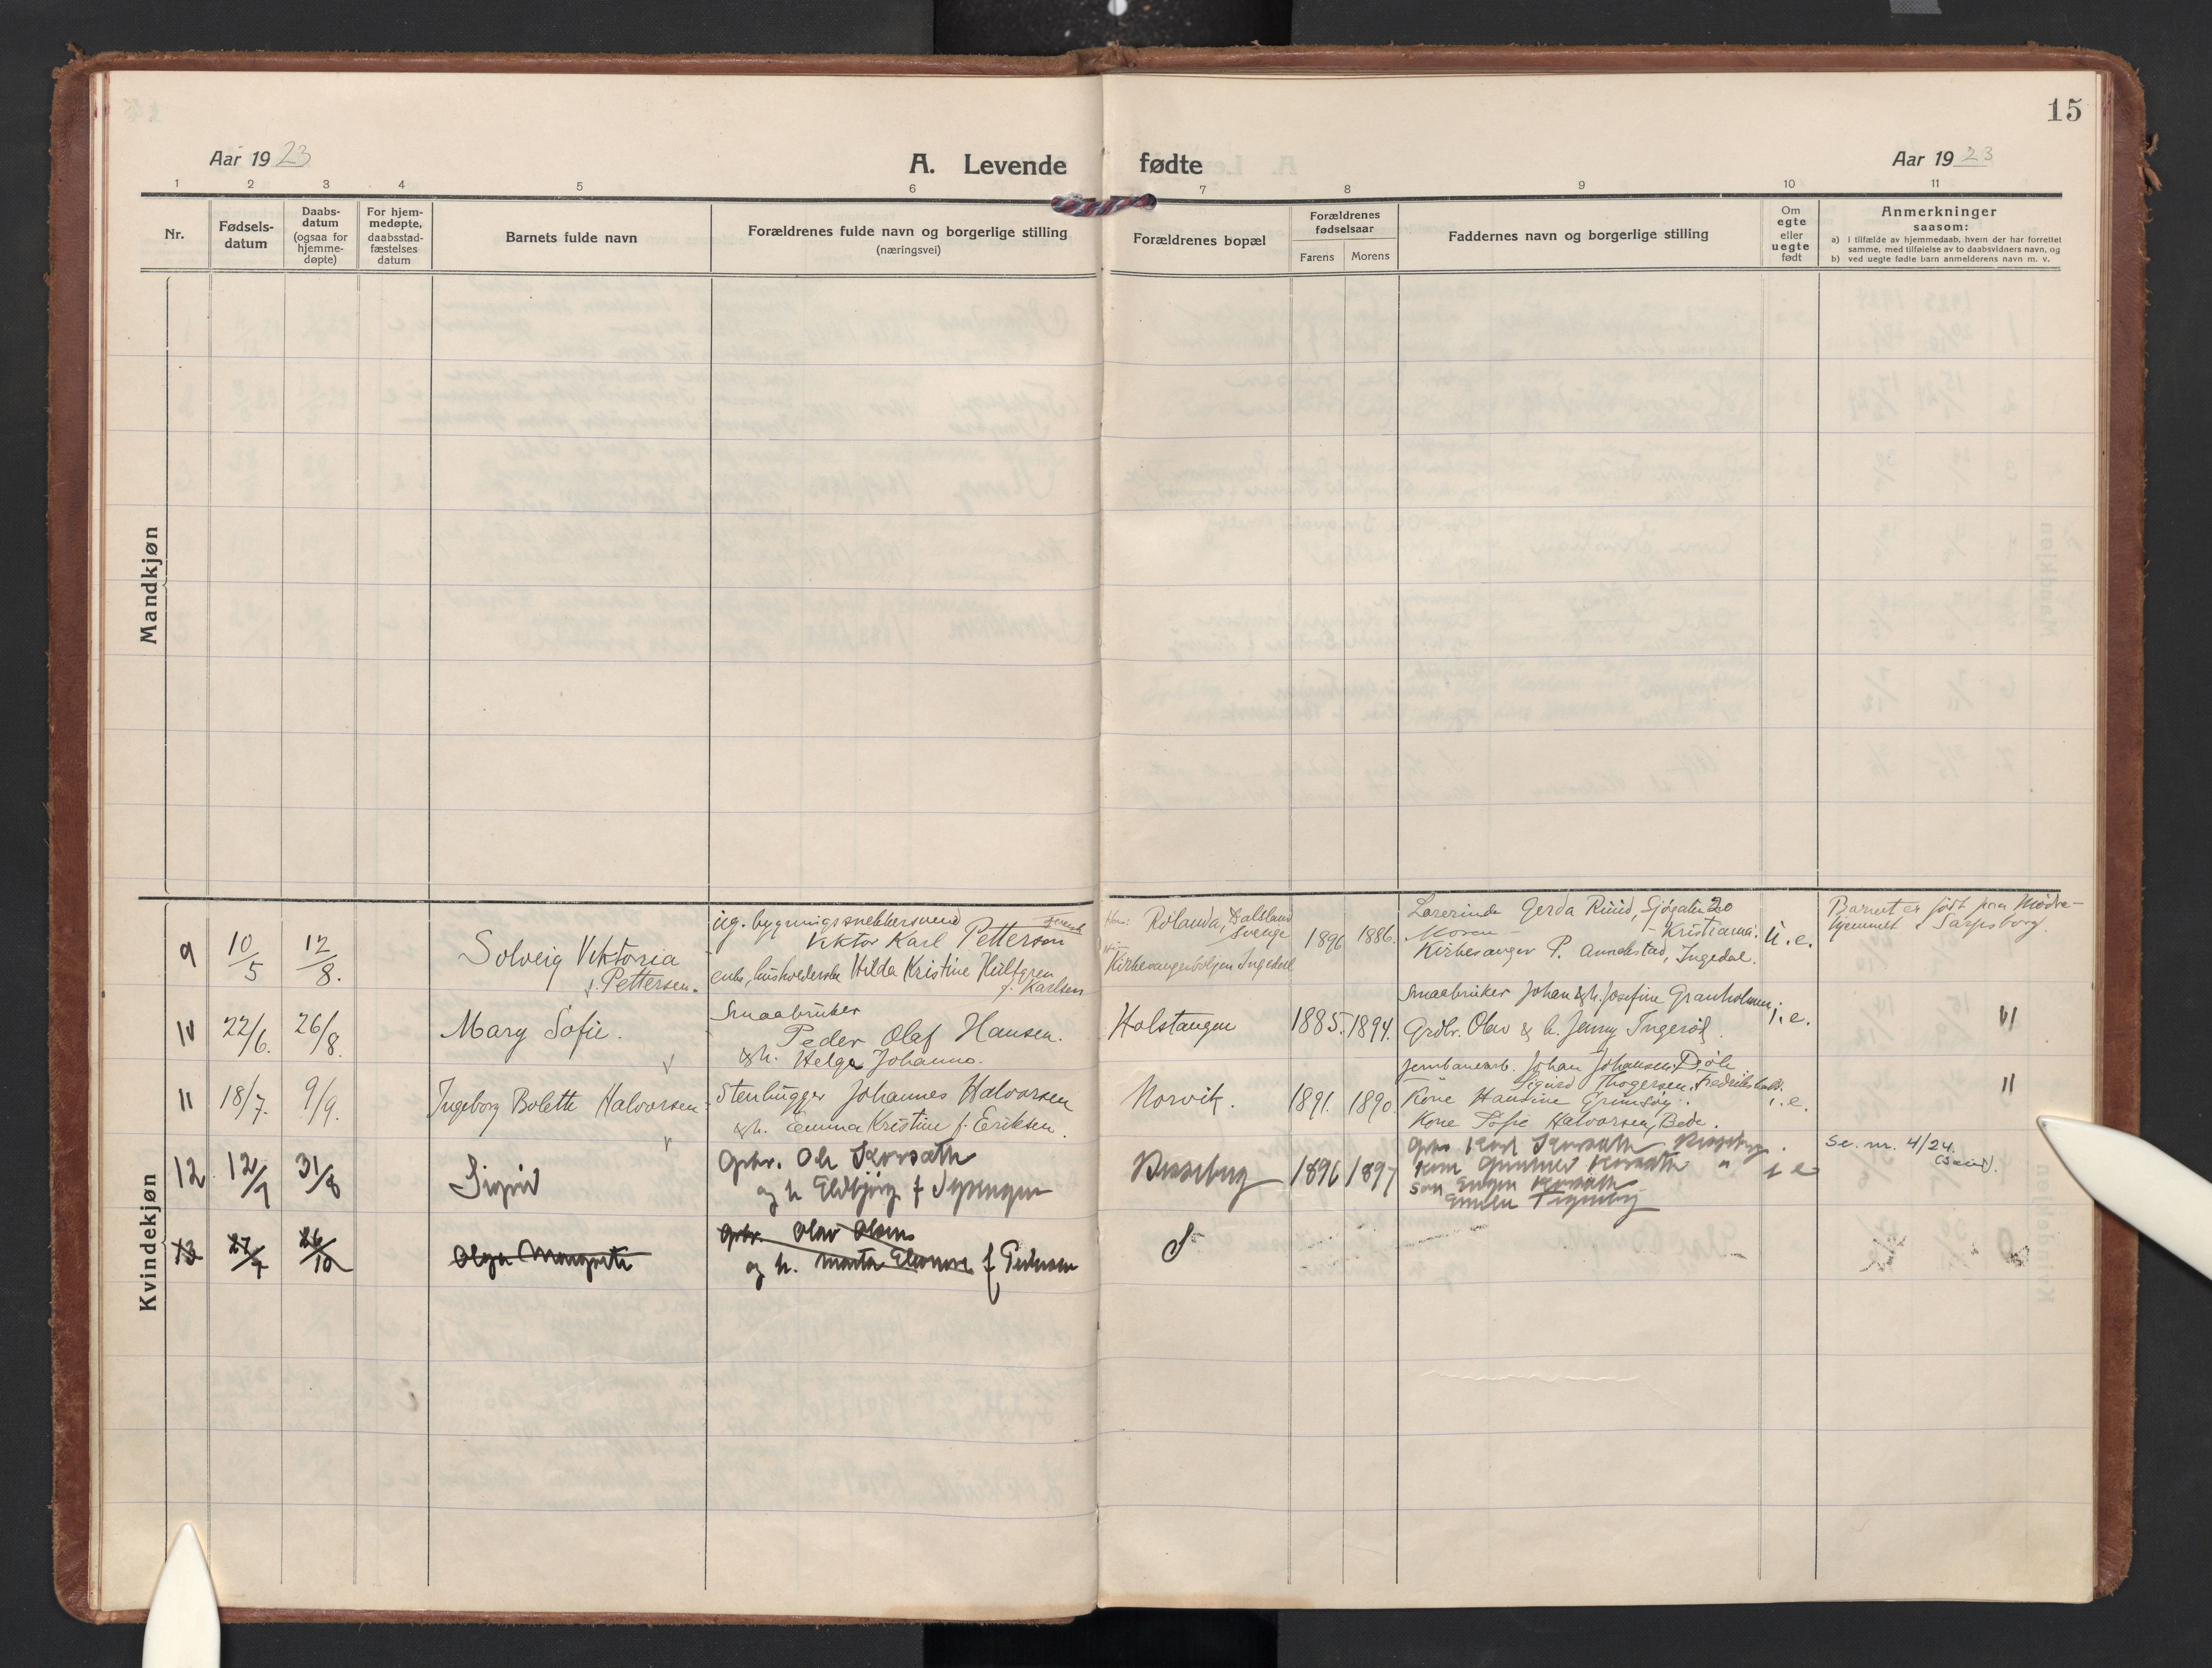 15
Aar 1923
A. Levende fødte
Aar 1923
1 2 3 4 5 6 7 8 9 10 11
Nr.
Fødsels-
datum
Daabs-
datum
(ogsaa for
hjemme-
døpte)
For hjem-
medøpte,
daabsstad-
fæstelses
datum
Barnets fulde navn
Forældrenes fulde navn og borgerlige stilling
(næringsvei)
Forældrenes bopæl
Forældrenes
fødselsaar
Farens
Morens
Faddernes navn og borgerlige stilling
Om
egte
eller
uegte
født
Anmerkninger
saasom:
a) i tilfælde av hjemmedaab, hvem der har forrettet
samme, med tilføielse av to daabsvidners navn, og
b) ved uegte fødte barn anmelderens navn m. v.
Mandkjøn
Kvindekjøn
9
10/5
12/8.
Solveig Viktoria
Pettersen.
ug. bygningssnekkersvend
Viktor Karl Petterson
svensk
enke, husholderske Hilda Kristine Hultgren
f. Karlsen
Rølanda, Dalsland
Sverige
Kirkesangerboligen Ingedal
1896
1886.
Lærerinde Gerda Ruud, Sjøgaten 20
Kristiania.
Moren
Kirkesanger P. Annæstad, Ingedal.
u.e.
Barnet er født paa Mødre-
hjemmet i Sarpsborg.
10
22/6.
26/8.
Mary Sofie.
Smaabruker
Peder Olaf Hansen.
& h. Helga Johanna.
Holstangen
1885.
1894.
Smaabruker Johan & h. Josefine Granholmen
Grdbr. Olav & h. Jenny Ingerød.
i.e.
"
11
18/7.
9/9.
Ingeborg Bolette Halvorsen
Stenhugger Johannes Halvorsen
& h. Emma Kristine f. Eriksen.
Norvik.
1891.
1890.
Jernbanearb. Johan Johansen,
Sigurd Thogersen, Fredrikshald.
Kone Hansine Grimsøy.
Kone Sofie Halvorsen, Bede.
i.e.
"
12
12/7
31/8
Sigrid
Grbr. Ole Korsæth
og h Eldbjørg f
1896
1897
Grbr Karl Korsæth
Kone Gunhild Korsæth "
i e
Se. nr. 4/24.
13
27/7
26/10
Olga Margrete
Grbr. Olav Olsen
og h. Marta Eleonora f Pedersen
S